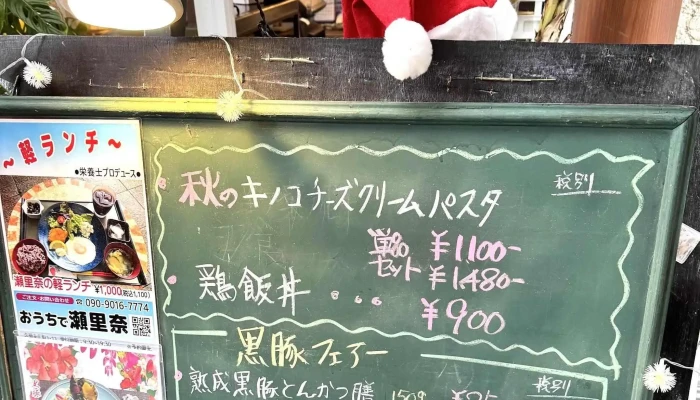 ~軽ランチ~
●栄養士プロデュース●
瀬里奈の軽ランチ ¥1,000(税込1,100)
ご注文・お問い合わせ ☎ 090-9016-7774
おうちで瀬里奈
税別
秋のキノコチーズクリームパスタ
単品 ¥1100-
セット ¥1480-
鶏飯丼 ... ¥900
黒豚フェアー
税別
熟成黒豚とんかつ膳 150g